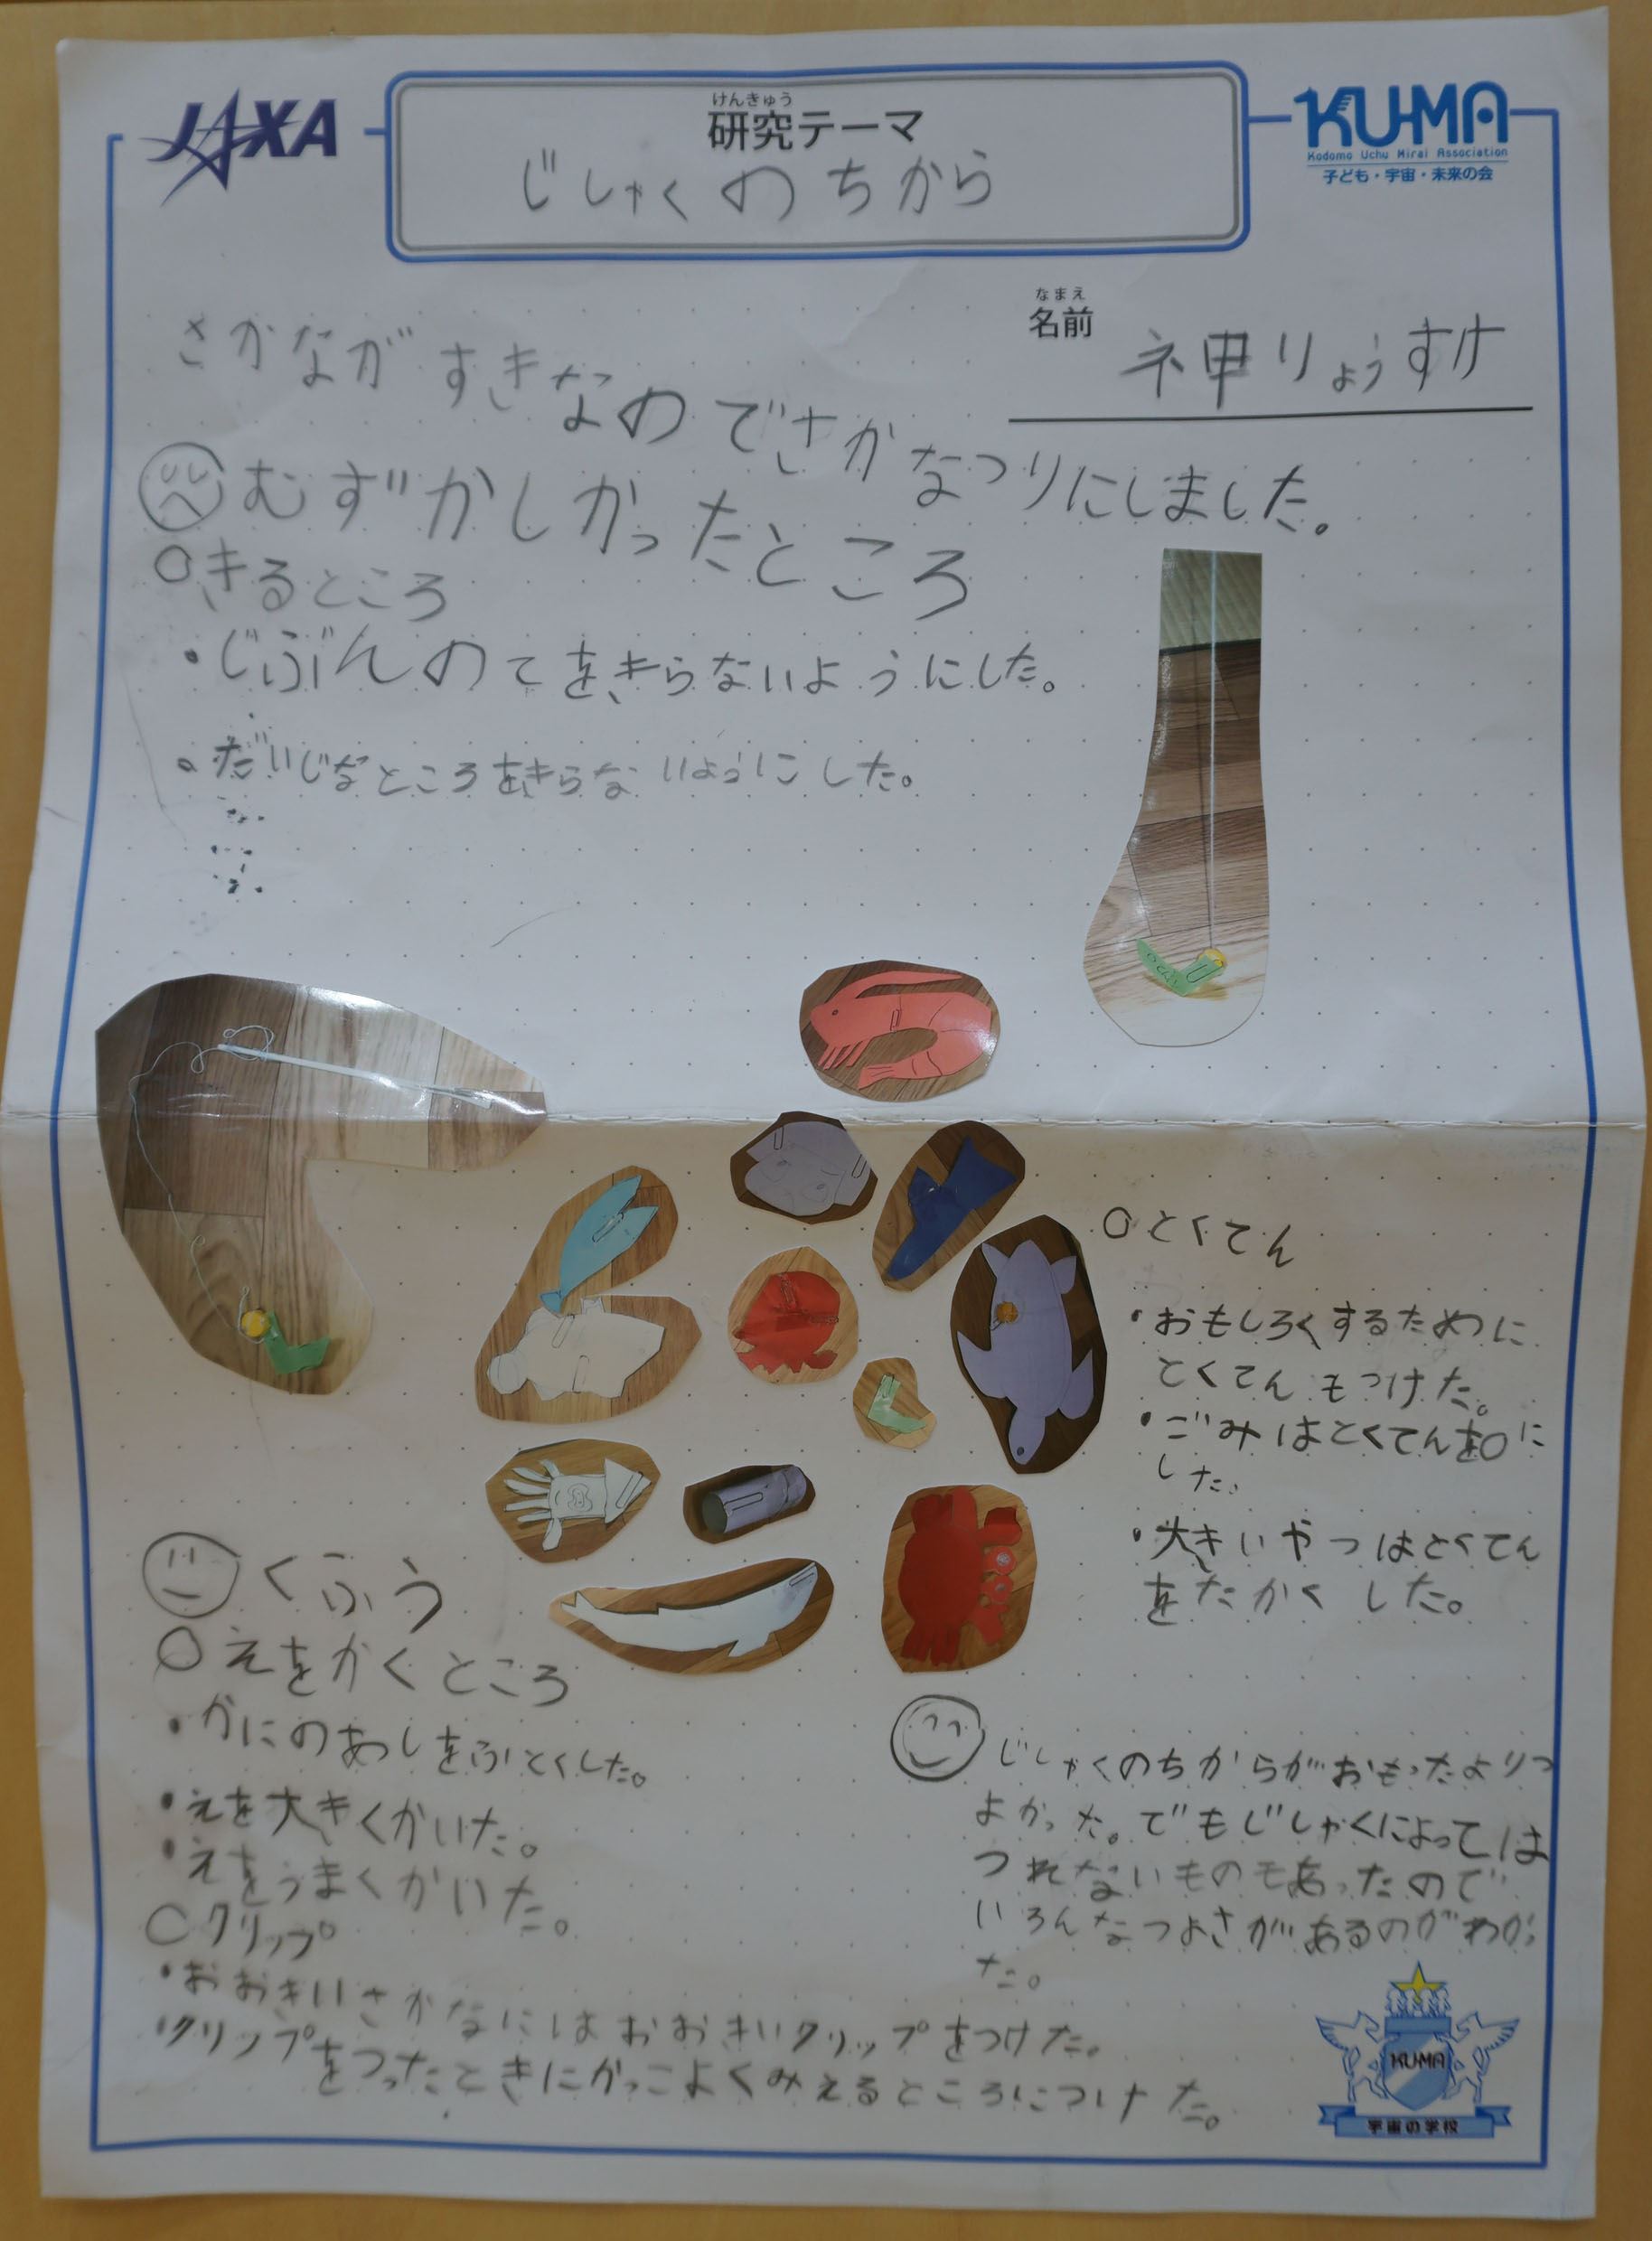 JAXA
けんきゅう
研究テーマ
じしゃくのちから
KU-MA
Kodomo Uchu Mirai Association
子ども・宇宙・未来の会
なまえ
名前
神りょうすけ
さかながすきなのでさかなつりにしました。
むずかしかったところ
○きるところ
・じぶんのてをきらないようにした。
・だいじなところをきらないようにした。
○とくてん
・おもしろくするために
とくてんもつけた。
・ごみはとくてんを0に
した。
・大きいやつはとくてん
をたかくした。
くふう
○えをかくところ
・かにのあしをふとくした。
・えを大きくかいた。
・えをうまくかいた。
○クリップ
・おおきいさかなにはおおきいクリップをつけた。
・クリップをつったときにかっこよくみえるところにつけた。
じしゃくのちからがおもったよりつ
よかった。でもじしゃくによっては
つれないものもあったので
いろんなつよさがあるのがわかっ
た。
KUMA
宇宙の学校